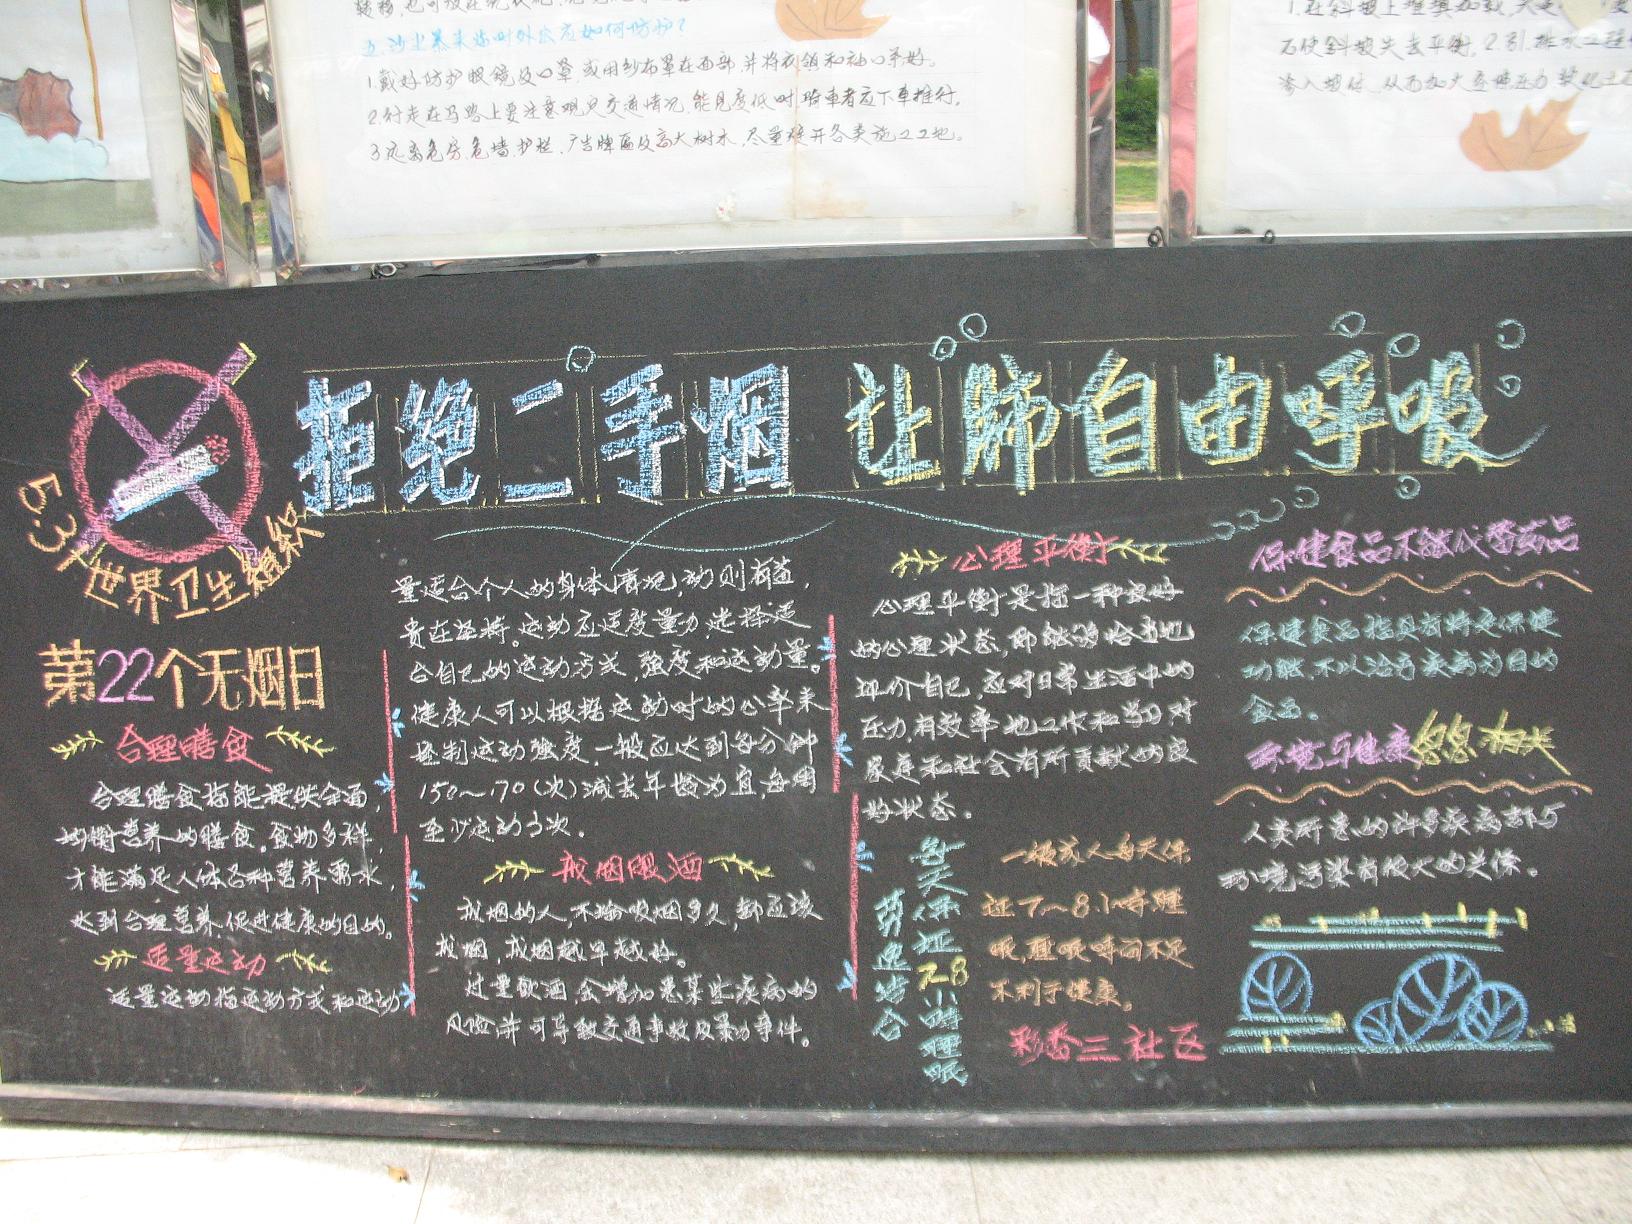 五.沙尘暴来临时外出应如何防护?
1.戴好防护眼镜及口罩,或用纱布罩在面部,并将衣领和袖口系好。
2.行走在马路上要注意观察交通情况,能见度低时,骑车者应下车推行。
3.远离危房、危墙、护栏、广告牌匾及高大树木,尽量避开各类施工工地。
1.在斜坡上堆填加载,
石使斜坡失去平衡。2.引、排水工程
渗入坡体,从而加大
拒绝二手烟 让肺自由呼吸
5.31世界卫生组织
第22个无烟日
合理膳食
合理膳食指能提供全面,
均衡营养的膳食。食物多样,
才能满足人体各种营养需求,
达到合理营养,促进健康的目的。
适量运动
适量运动指运动方式和运动
量适合个人的身体情况,动则有益,
贵在坚持。运动应适度量力,选择适
合自己的运动方式,强度和运动量。
健康人可以根据运动时的心率来
控制运动强度,一般应达到每分钟
150~170(次)减去年龄为宜,每周
至少运动3次。
戒烟限酒
戒烟的人,不论吸烟多久,都应该
戒烟,戒烟越早越好。
过量饮酒,会增加患某些疾病的
风险,并可导致交通事故及暴力事件。
心理平衡
心理平衡是指一种良好
的心理状态,即能够恰当地
评价自己,应对日常生活中的
压力,有效率地工作和学习,对
家庭和社会有所贡献的良
好状态。
每天保证7-8小时睡眠
劳逸结合
一般成人每天保
证7~8小时睡
眠,睡眠时间不足
不利于健康。
彩香三社区
保健食品不能代替药品
保健食品指具有特定保健
功能,不以治疗疾病为目的
食品。
环境与健康息息相关
人类所患的许多疾病都与
环境污染有很大的关系。